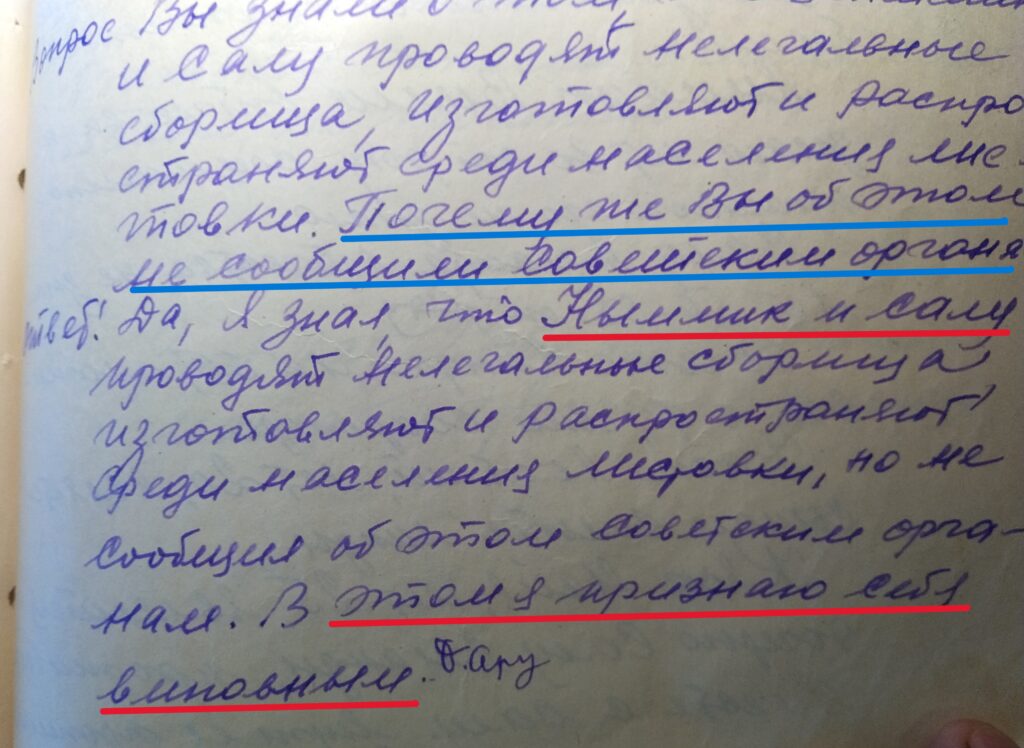 Вопрос Вы знали о том
и Салу проводят нелегальные
сборища, изготовляют и распро
страняют среди населения лис-
товки. Почему же Вы об этом
не сообщили советским органа
ответ: Да, я знал, что Ныммик и Салу
проводят нелегальные сборища
изготовляют и распространяют
среди населения листовки, но не
сообщил об этом советским орга-
нам. В этом я признаю себя
виновным. Т.Ару